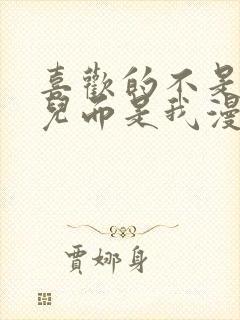 喜歡的不是
兒而是我漫
賈娜身